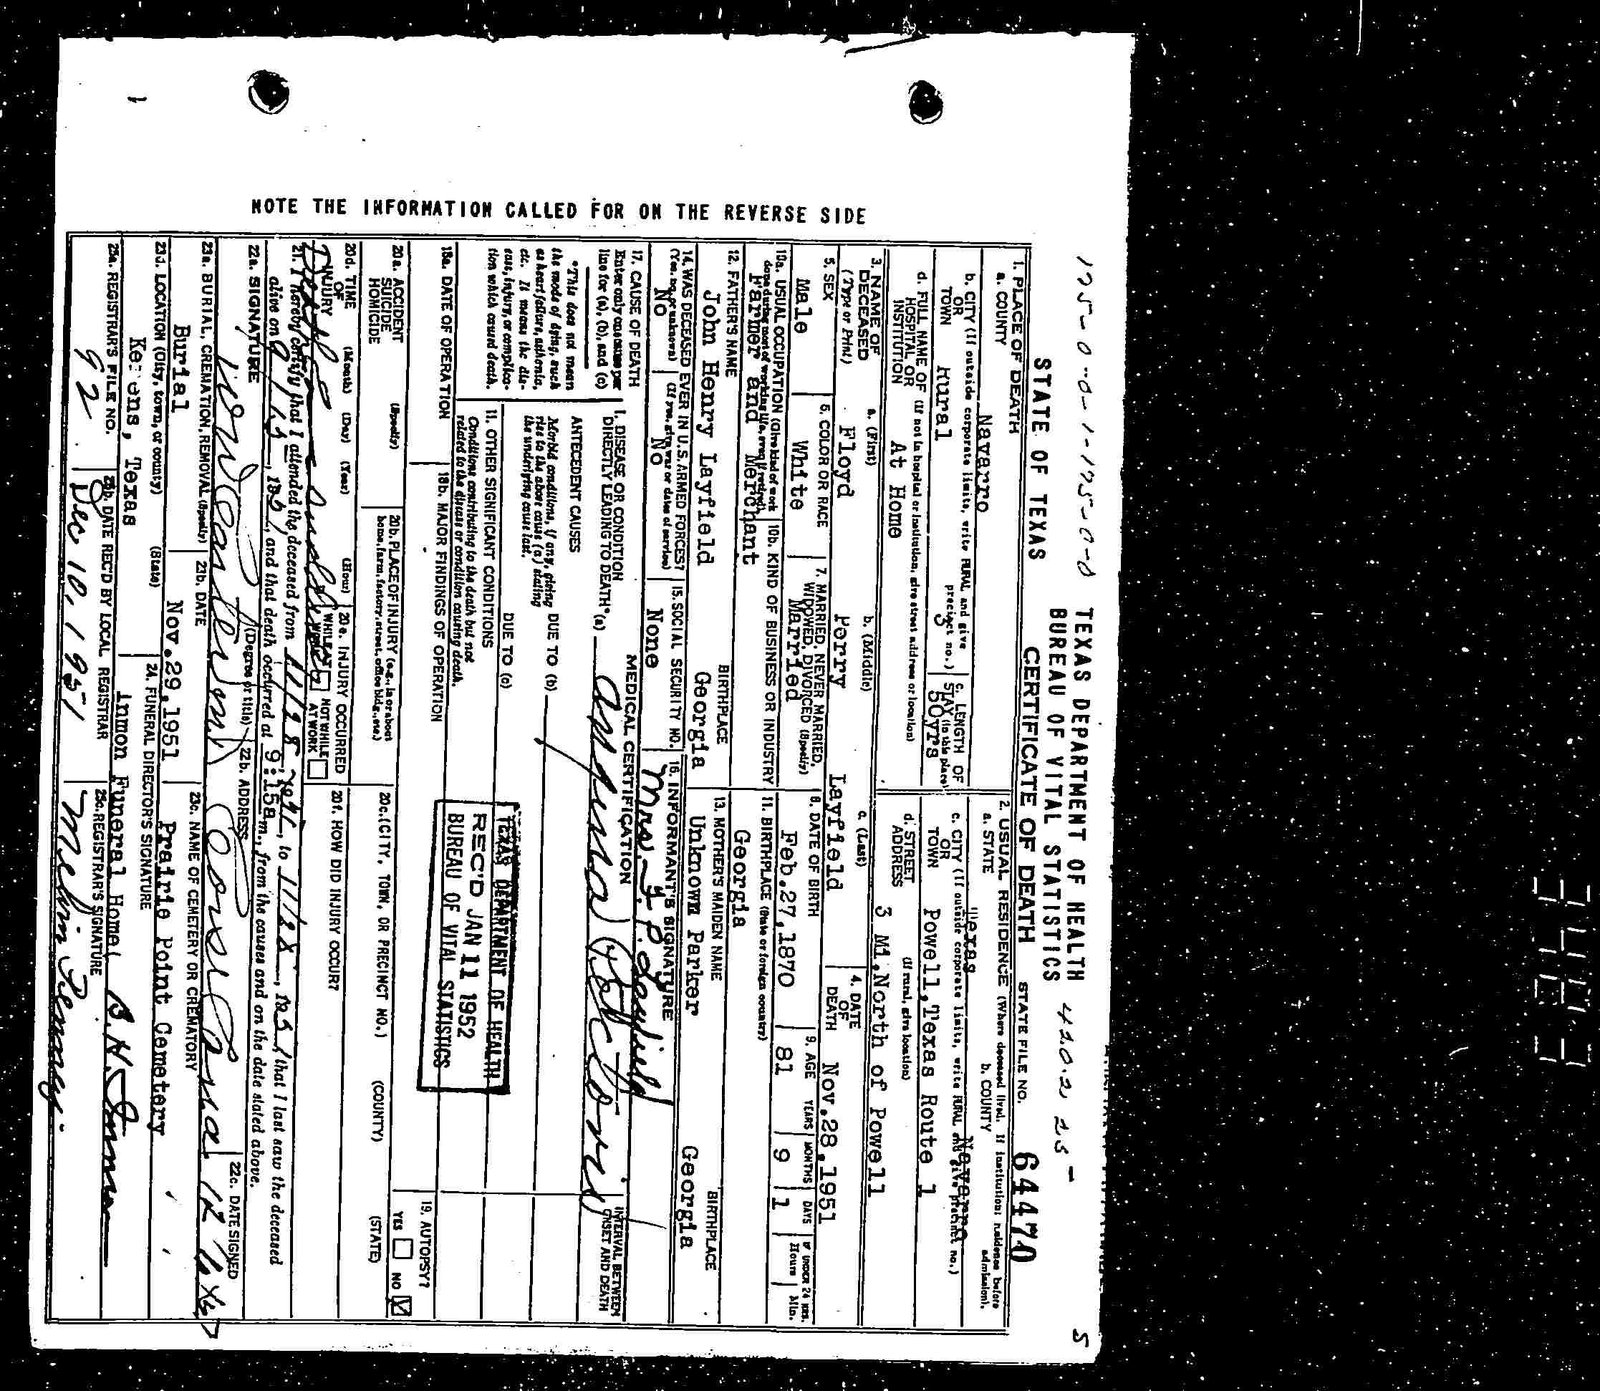 175-0-0-1-175-0-0
TEXAS DEPARTMENT OF HEALTH 420.2 25 -
5
STATE OF TEXAS
BUREAU OF VITAL STATISTICS
CERTIFICATE OF DEATH STATE FILE NO. 64470
1. PLACE OF DEATH
a. COUNTY Navarro
2. USUAL RESIDENCE (Where deceased lived. If institution: residence before admission).
a. STATE Texas
b. COUNTY Navarro
b. CITY (If outside corporate limits, write RURAL and give precinct no.)
OR
TOWN Rural 3
c. LENGTH OF
STAY (in this place)
50yrs
c. CITY (If outside corporate limits, write RURAL and give precinct no.)
OR
TOWN Powell, Texas Route 1
d. FULL NAME OF (If not in hospital or institution, give street address or location)
HOSPITAL OR
INSTITUTION At Home
d. STREET (If rural, give location)
ADDRESS 3 Mi. North of Powell
3. NAME OF
DECEASED
(Type or Print)
a. (First) Floyd
b. (Middle) Perry
c. (Last) Layfield
4. DATE
OF
DEATH Nov. 28, 1951
5. SEX
Male
6. COLOR OR RACE
White
7. MARRIED, NEVER MARRIED,
WIDOWED, DIVORCED (Specify)
Married
8. DATE OF BIRTH
Feb. 27, 1870
9. AGE YEARS MONTHS DAYS
81 9 1
IF UNDER 24 HRS.
Hours Min.
10a. USUAL OCCUPATION (Give kind of work
done during most of working life, even if retired)
Farmer and Merchant
10b. KIND OF BUSINESS OR INDUSTRY
11. BIRTHPLACE (State or foreign country)
Georgia
12. FATHER'S NAME BIRTHPLACE
John Henry Layfield Georgia
13. MOTHER'S MAIDEN NAME BIRTHPLACE
Unknown Parker Georgia
14. WAS DECEASED EVER IN U.S. ARMED FORCES?
(Yes, no, or unknown) (If yes, give war or dates of service)
No No
15. SOCIAL SECURITY NO.
None
16. INFORMANT'S SIGNATURE
Mrs. F. P. Layfield
MEDICAL CERTIFICATION
INTERVAL BETWEEN
ONSET AND DEATH
17. CAUSE OF DEATH
Enter only one cause per
line for (a), (b), and (c)
*This does not mean
the mode of dying, such
as heart failure, asthenia,
etc. It means the dis-
ease, injury, or complica-
tion which caused death.
I. DISEASE OR CONDITION
DIRECTLY LEADING TO DEATH* (a) Angina Pectoris
ANTECEDENT CAUSES
Morbid conditions, if any, giving DUE TO (b)
rise to the above cause (a) stating
the underlying cause last.
DUE TO (c)
II. OTHER SIGNIFICANT CONDITIONS
Conditions contributing to the death but not
related to the disease or condition causing death.
TEXAS DEPARTMENT OF HEALTH
REC'D JAN 11 1952
BUREAU OF VITAL STATISTICS
18a. DATE OF OPERATION
18b. MAJOR FINDINGS OF OPERATION
19. AUTOPSY?
YES NO
20a. ACCIDENT (Specify)
SUICIDE
HOMICIDE
20b. PLACE OF INJURY (e.g., in or about
home, farm, factory, street, office bldg., etc.)
20c. (CITY, TOWN, OR PRECINCT NO.) (COUNTY) (STATE)
20d. TIME (Month) (Day) (Year) (Hour)
OF
INJURY
20e. INJURY OCCURRED
WHILE AT WORK NOT WHILE AT WORK
20f. HOW DID INJURY OCCUR?
21. I hereby certify that I attended the deceased from 11/28, 1951, to 11/28, 1951 that I last saw the deceased
alive on 9/15, 1951, and that death occurred at 9:15a m., from the causes and on the date stated above.
22a. SIGNATURE (Degree or title)
22b. ADDRESS
Corsicana
22c. DATE SIGNED
23a. BURIAL, CREMATION, REMOVAL (Specify)
Burial
23b. DATE
Nov. 29, 1951
23c. NAME OF CEMETERY OR CREMATORY
Prairie Point Cemetery
23d. LOCATION (City, town, or county) (State)
Kerens, Texas
24. FUNERAL DIRECTOR'S SIGNATURE
Inmon Funeral Home B. H. Inmon
25a. REGISTRAR'S FILE NO.
92
25b. DATE REC'D BY LOCAL REGISTRAR
Dec 10, 1951
25c. REGISTRAR'S SIGNATURE
NOTE THE INFORMATION CALLED FOR ON THE REVERSE SIDE